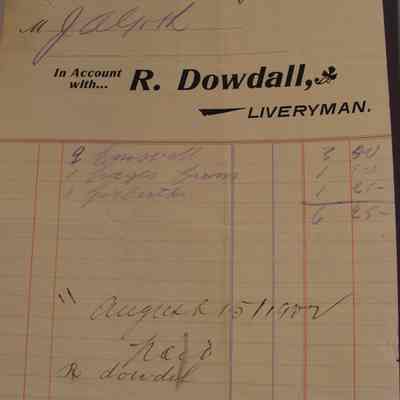 M J A Goth
In Account
with... R. Dowdall,
LIVERYMAN.
2 3 50
1 1 50
1 1 25
6 25
" August 15/1902
Paid
R dowdal